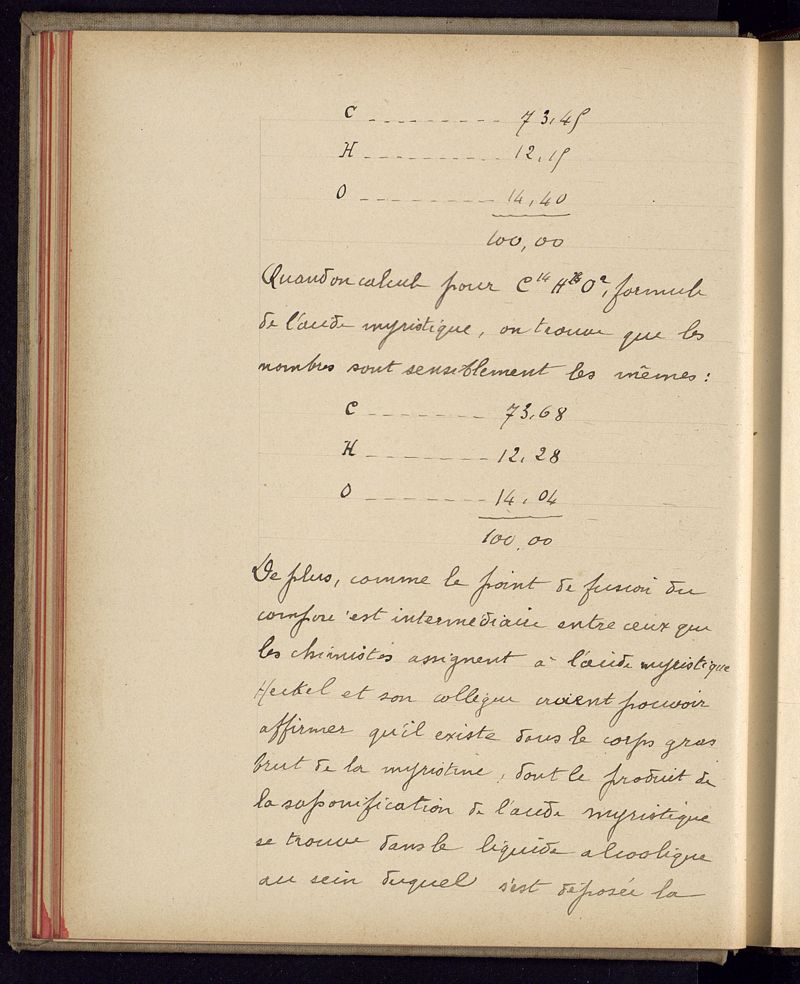 C _ _ _ _ _ _ _ _ _ 73,45
H _ _ _ _ _ _ _ _ _ 12,15
O _ _ _ _ _ _ _ _ _ 14,40
100,00
Quand on calcule pour C¹⁴H²⁸O², formule
de l'acide myristique, on trouve que les
nombres sont sensiblement les mêmes :
C _ _ _ _ _ _ _ _ _ 73,68
H _ _ _ _ _ _ _ _ _ 12,28
O _ _ _ _ _ _ _ _ _ 14,04
100,00
De plus, comme le point de fusion du
composé est intermédiaire entre ceux que
les chimistes assignent à l'acide myristique
Heckel et son collègue croient pouvoir
affirmer qu'il existe dans le corps gras
brut de la myristine, dont le produit de
la saponification de l'acide myristique
se trouve dans le liquide alcoolique
au sein duquel s'est déposée la